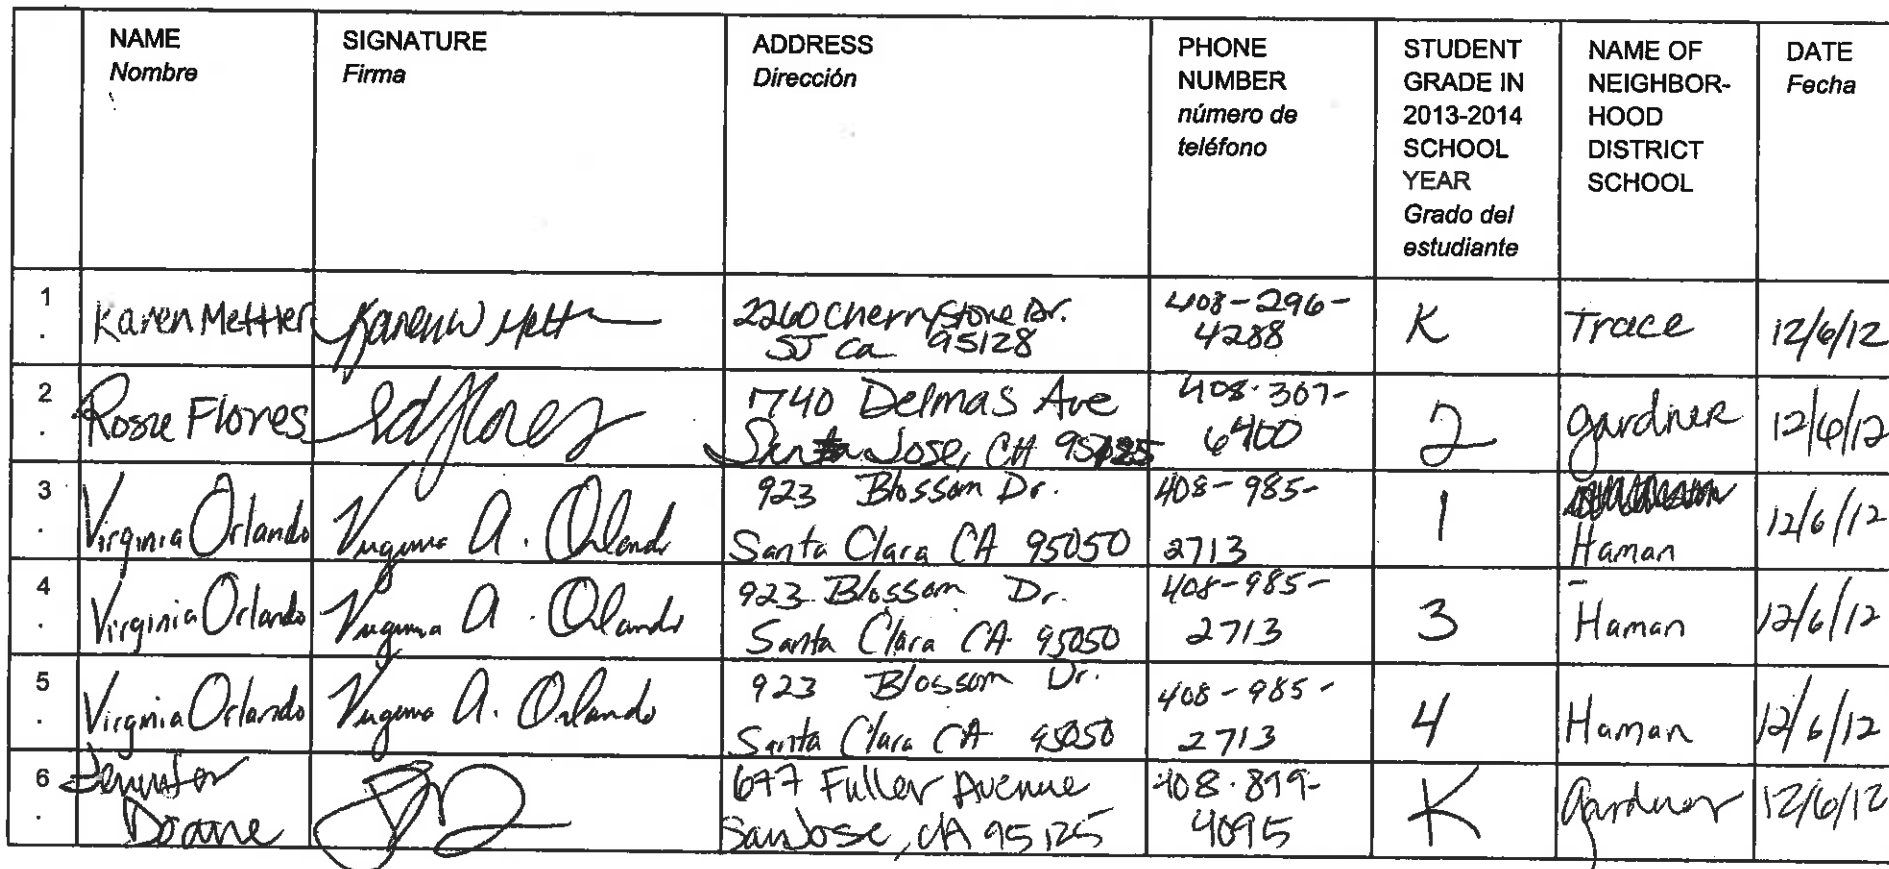 NAME
Nombre
SIGNATURE
Firma
ADDRESS
Dirección
PHONE
NUMBER
número de
teléfono
STUDENT
GRADE IN
2013-2014
SCHOOL
YEAR
Grado del
estudiante
NAME OF
NEIGHBOR-
HOOD
DISTRICT
SCHOOL
DATE
Fecha
1
.
Karen Mettler
Karen W Mett
2260 Cherrystone Dr.
SJ Ca 95128
408-296-
4288
K
Trace
12/6/12
2
.
Rosie Flores
1740 Delmas Ave
San Jose, CA 95125
408.307-
6400
2
gardner
12/6/12
3
.
Virginia Orlando
Virginia A. Orlando
923 Blossom Dr.
Santa Clara CA 95050
408-985-
2713
1
Haman
12/6/12
4
.
Virginia Orlando
Virginia A. Orlando
923 Blossom Dr.
Santa Clara CA 95050
408-985-
2713
3
Haman
12/6/12
5
.
Virginia Orlando
Virginia A. Orlando
923 Blossom Dr.
Santa Clara CA 95050
408-985-
2713
4
Haman
12/6/12
6
.
Jennifer
Doane
677 Fuller Avenue
San Jose, CA 95125
408.899-
4095
K
Gardner
12/6/12